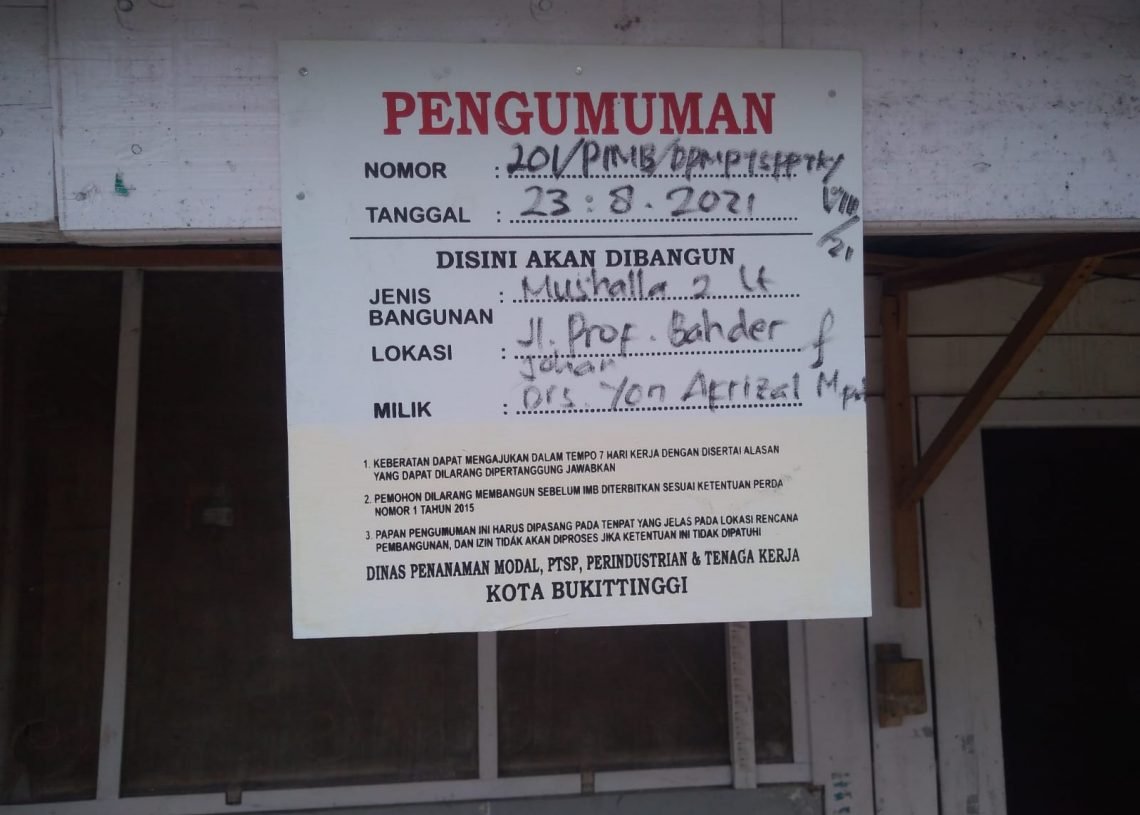 PENGUMUMAN
NOMOR : 201/PIMB/DPMPTSPPTK/
VIII
/21
TANGGAL : 23:8.2021
DISINI AKAN DIBANGUN
JENIS BANGUNAN : Mushalla 2 Lt
LOKASI : Jl. Prof. Bahder
Johan
MILIK : Drs. Yon Afrizal
1. KEBERATAN DAPAT MENGAJUKAN DALAM TEMPO 7 HARI KERJA DENGAN DISERTAI ALASAN
YANG DAPAT DILARANG DIPERTANGGUNG JAWABKAN
2. PEMOHON DILARANG MEMBANGUN SEBELUM IMB DITERBITKAN SESUAI KETENTUAN PERDA
NOMOR 1 TAHUN 2015
3. PAPAN PENGUMUMAN INI HARUS DIPASANG PADA TENPAT YANG JELAS PADA LOKASI RENCANA
PEMBANGUNAN, DAN IZIN TIDAK AKAN DIPROSES JIKA KETENTUAN INI TIDAK DIPATUHI
DINAS PENANAMAN MODAL, PTSP, PERINDUSTRIAN & TENAGA KERJA
KOTA BUKITTINGGI